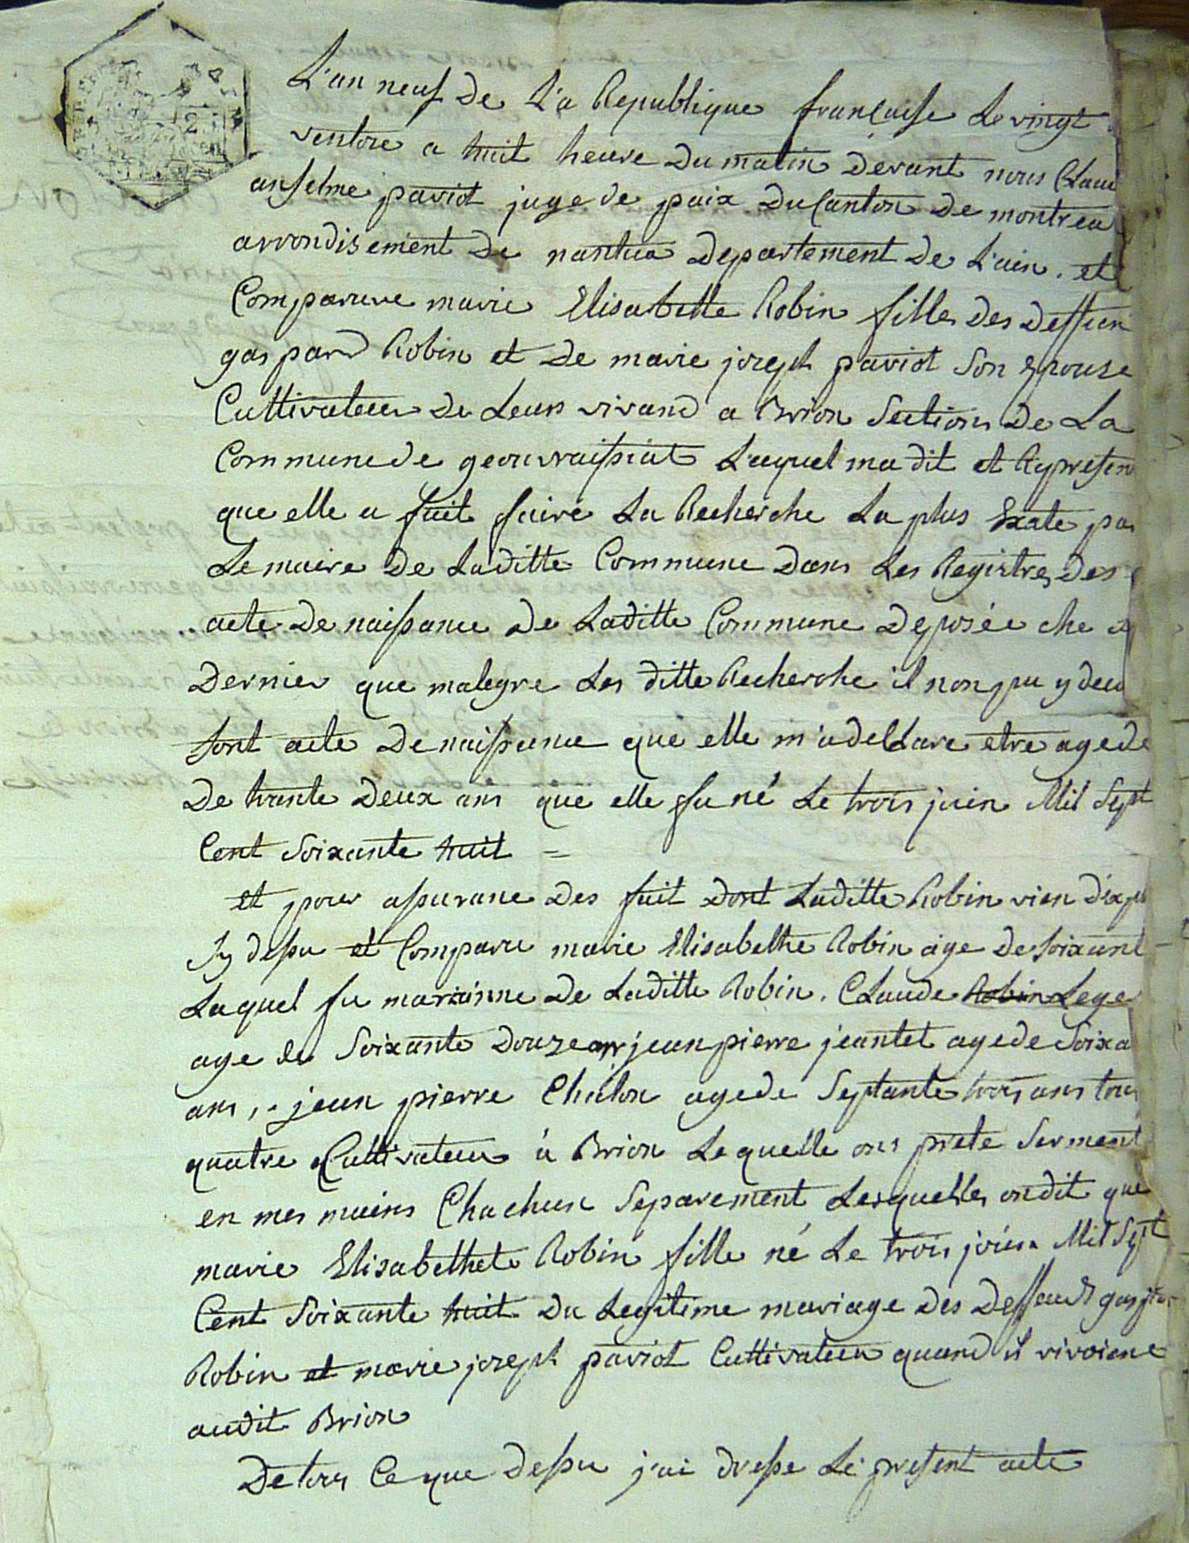 L'an neuf de L'a Republique francaisse Le vingt
ventose a huit heure du matin devant nous Clau
anselme paviot juge de paix du Canton de montrea
arrondisement de nantua departement de L'ain. et
Comparuve marie Elisabette Robin fille des deffun
gaspard Robin et de marie joseph paviot Son Epouse
Cultivateur de Leurs vivand a Brion Sections de La
Commune de geouvraissiat Laquel ma dit et Represen
que elle a fait faire La Recherche La plus Exate pa
Le maire de Laditte Commune dans Les Registres des
acte de naissance de Laditte Commune deposée che
Dernier que malegre Les ditte Recherche il non pu y deco
sont acte de naissance que elle m'a dellare etre agede
De trante deux ans que elle fu né Le trois juin Mil Sept
Cent Soixante huit =
et pour assurane des fait dont Laditte Robin vien d'exp
Sy dessu et Comparu marie Elisabethe Robin age de soixant
Laquel fu marainne de Laditte Robin. CLaude Robin Lege
age de Soixante douze ans jean pierre jeantet agede Soixa
ans, jean pierre Chalon agede Septante trois ans tous
quatre Cultivateur à Brion Lequelle ons prete Serment
en mes mains Chachun Separement Lesquelles ondit que
marie Elisabethet Robin fille né Le trois joien Mil Sept
Cent Soixante huit du Legitime mariage des deffands gaspar
Robin et marie joseph paviot Cultivateur quand il vivoiene
audit Brion
De tous Ce que dessu j'ai dresse Le present acte